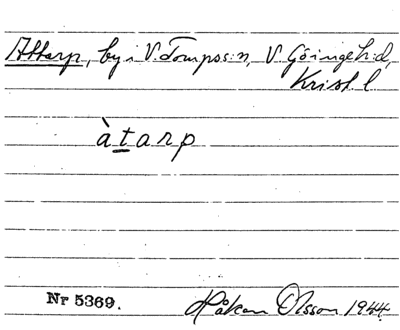 Attarp, by i V. Torups:n, V. Göinge h:d,
Krist. l
àtarp
Nr 5369.
Håkan Olsson 1944.